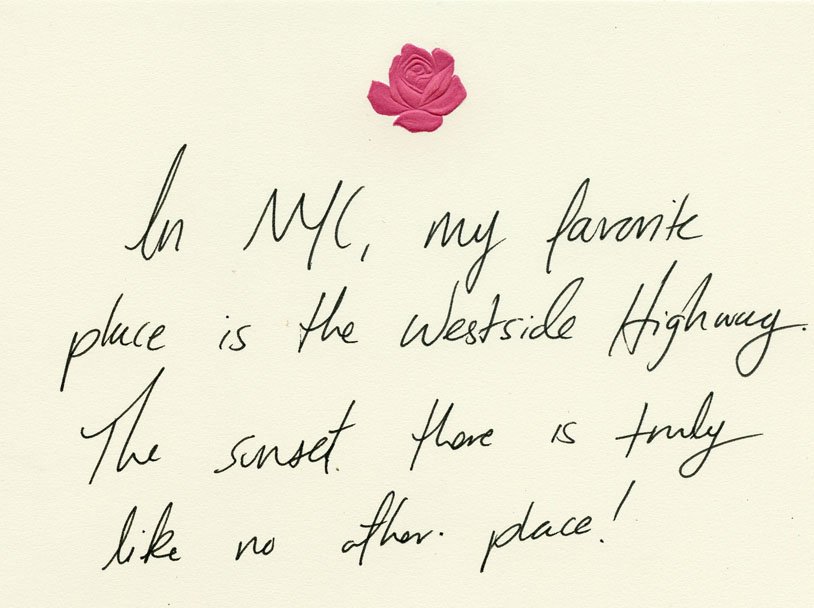 In NYC, my favorite
place is the Westside Highway.
The sunset there is truly
like no other. place!